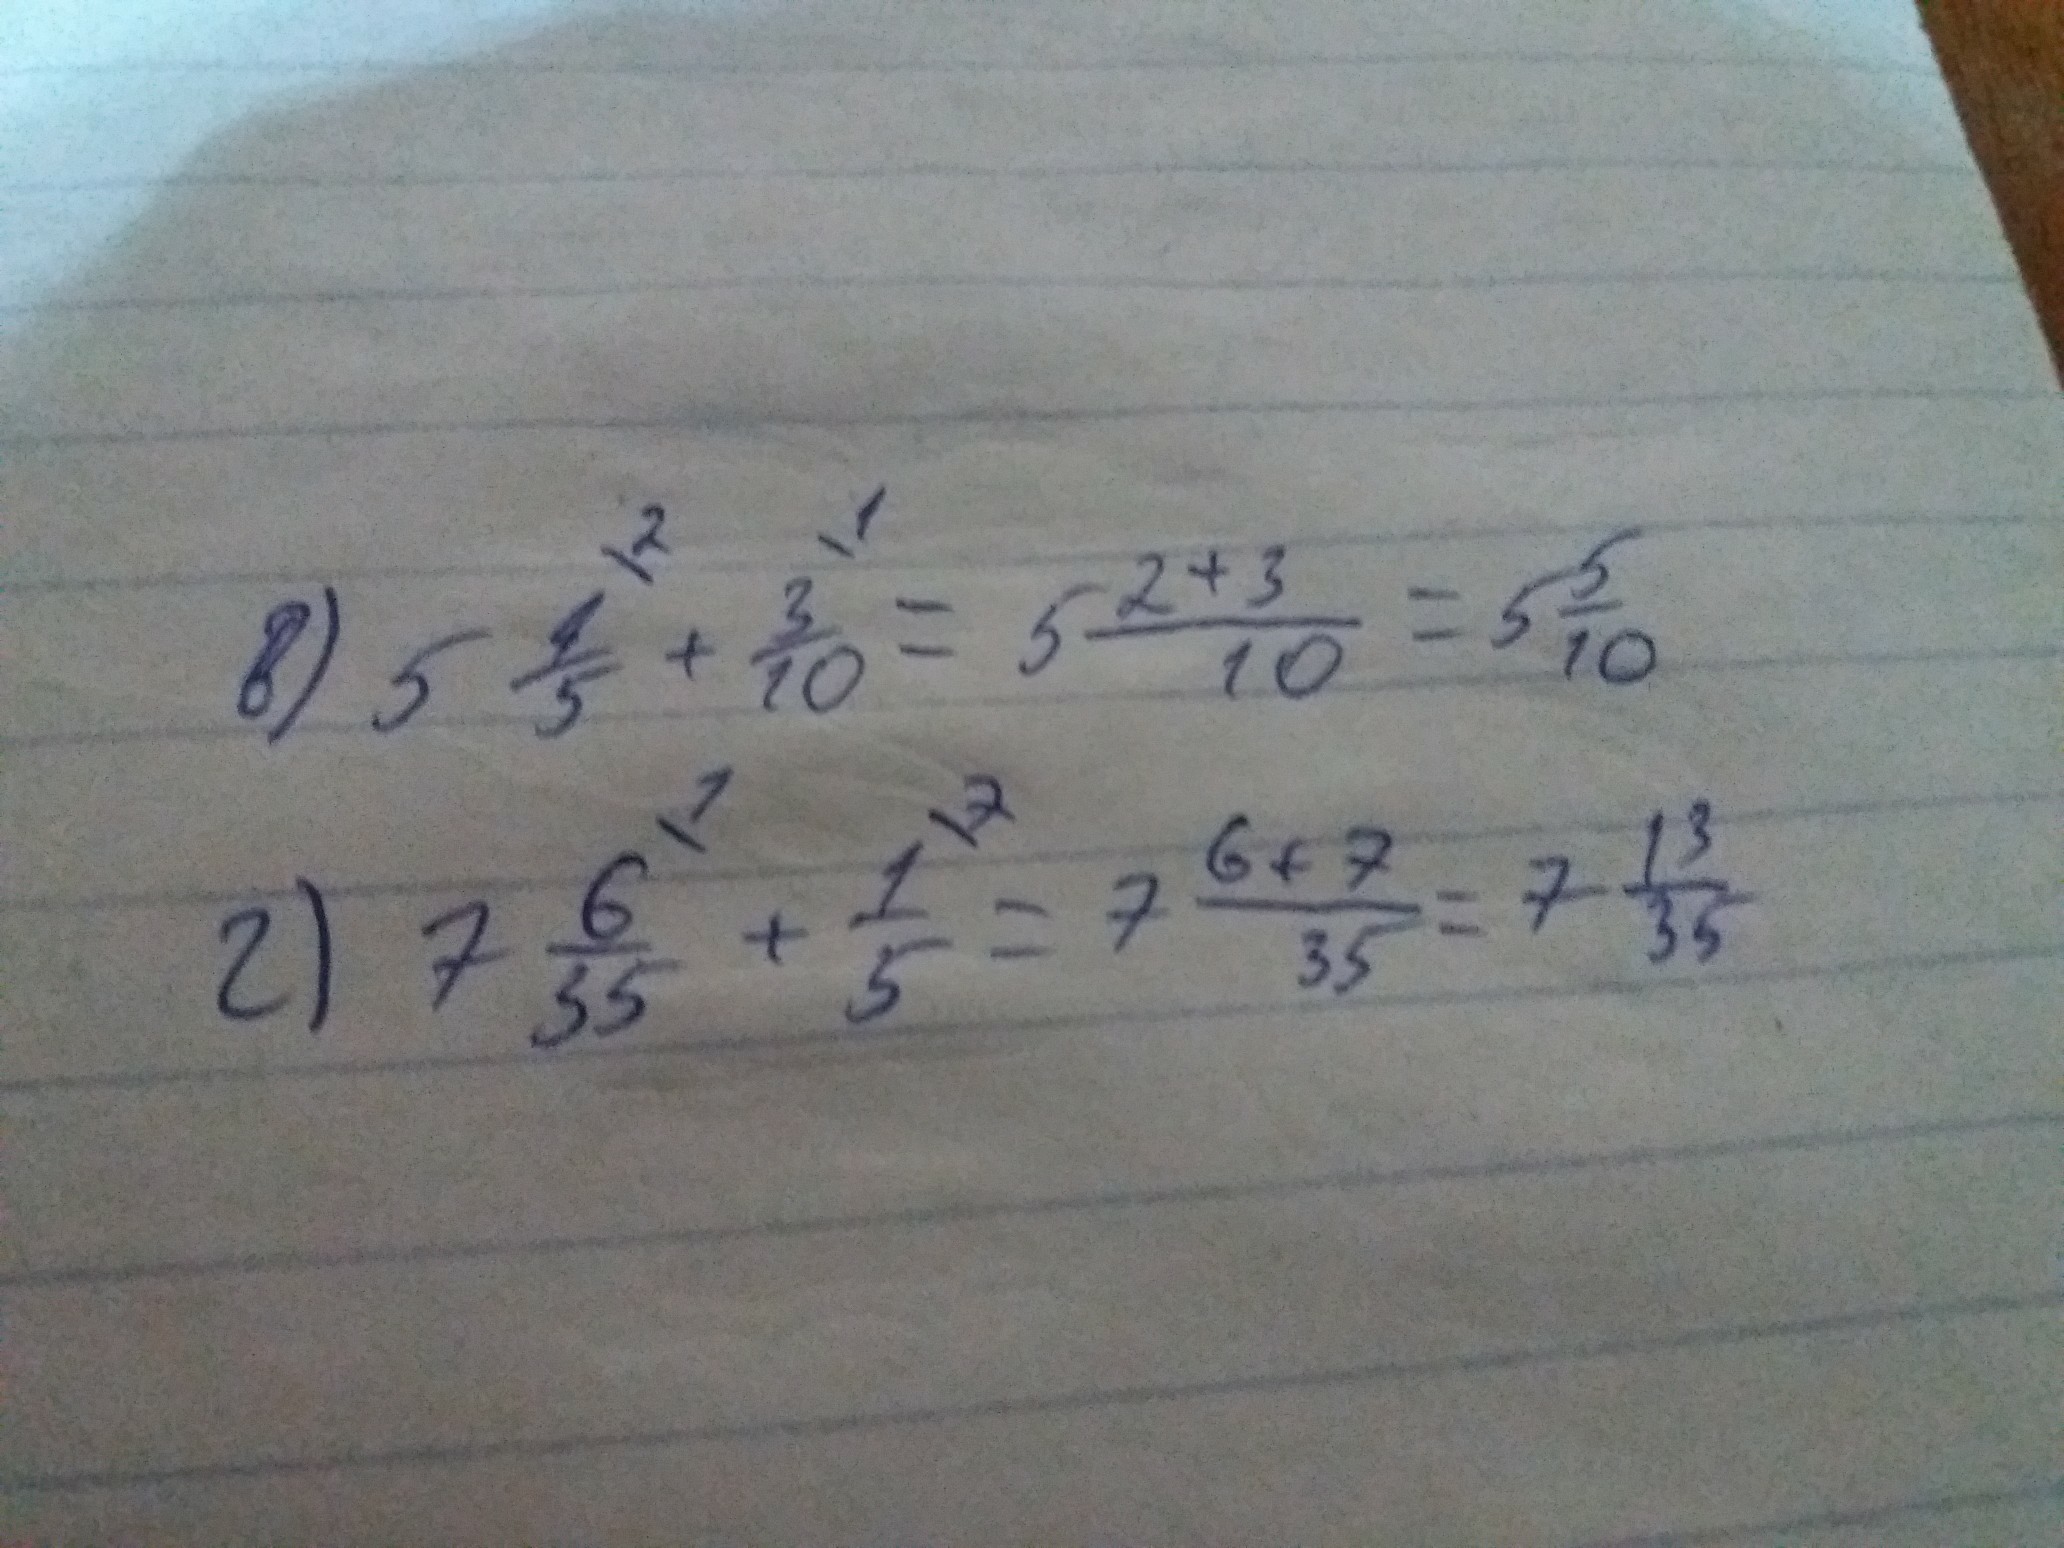 в) 5 1/5 \2 + 3/10 \1 = 5 2+3/10 = 5 5/10
г) 7 6/35 \1 + 1/5 \7 = 7 6+7/35 = 7 13/35